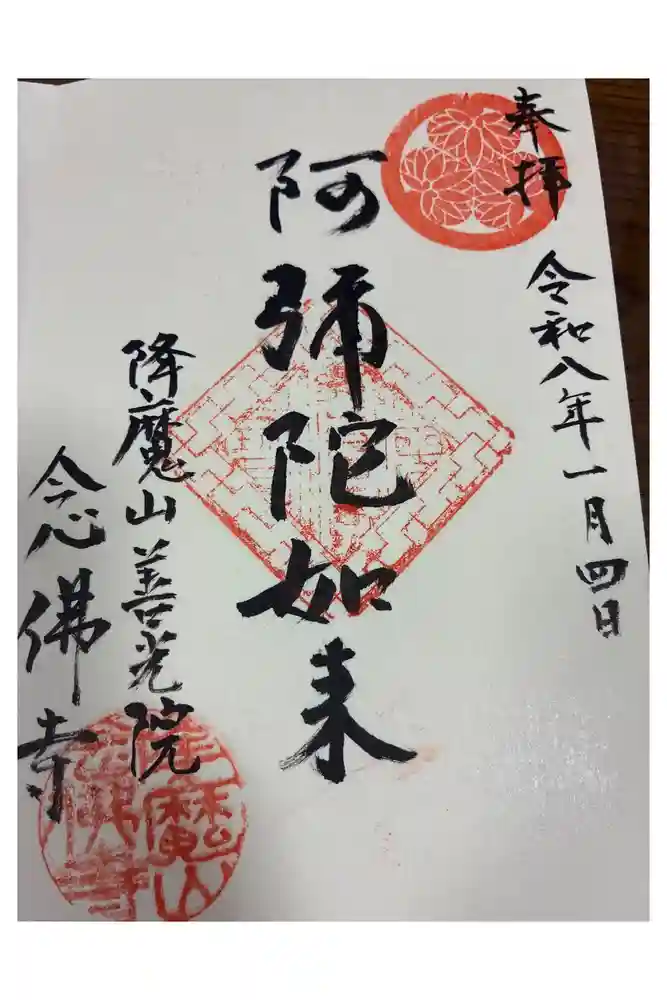 奉拝
令和八年一月四日
阿彌陀如来
降魔山善光院
念佛寺